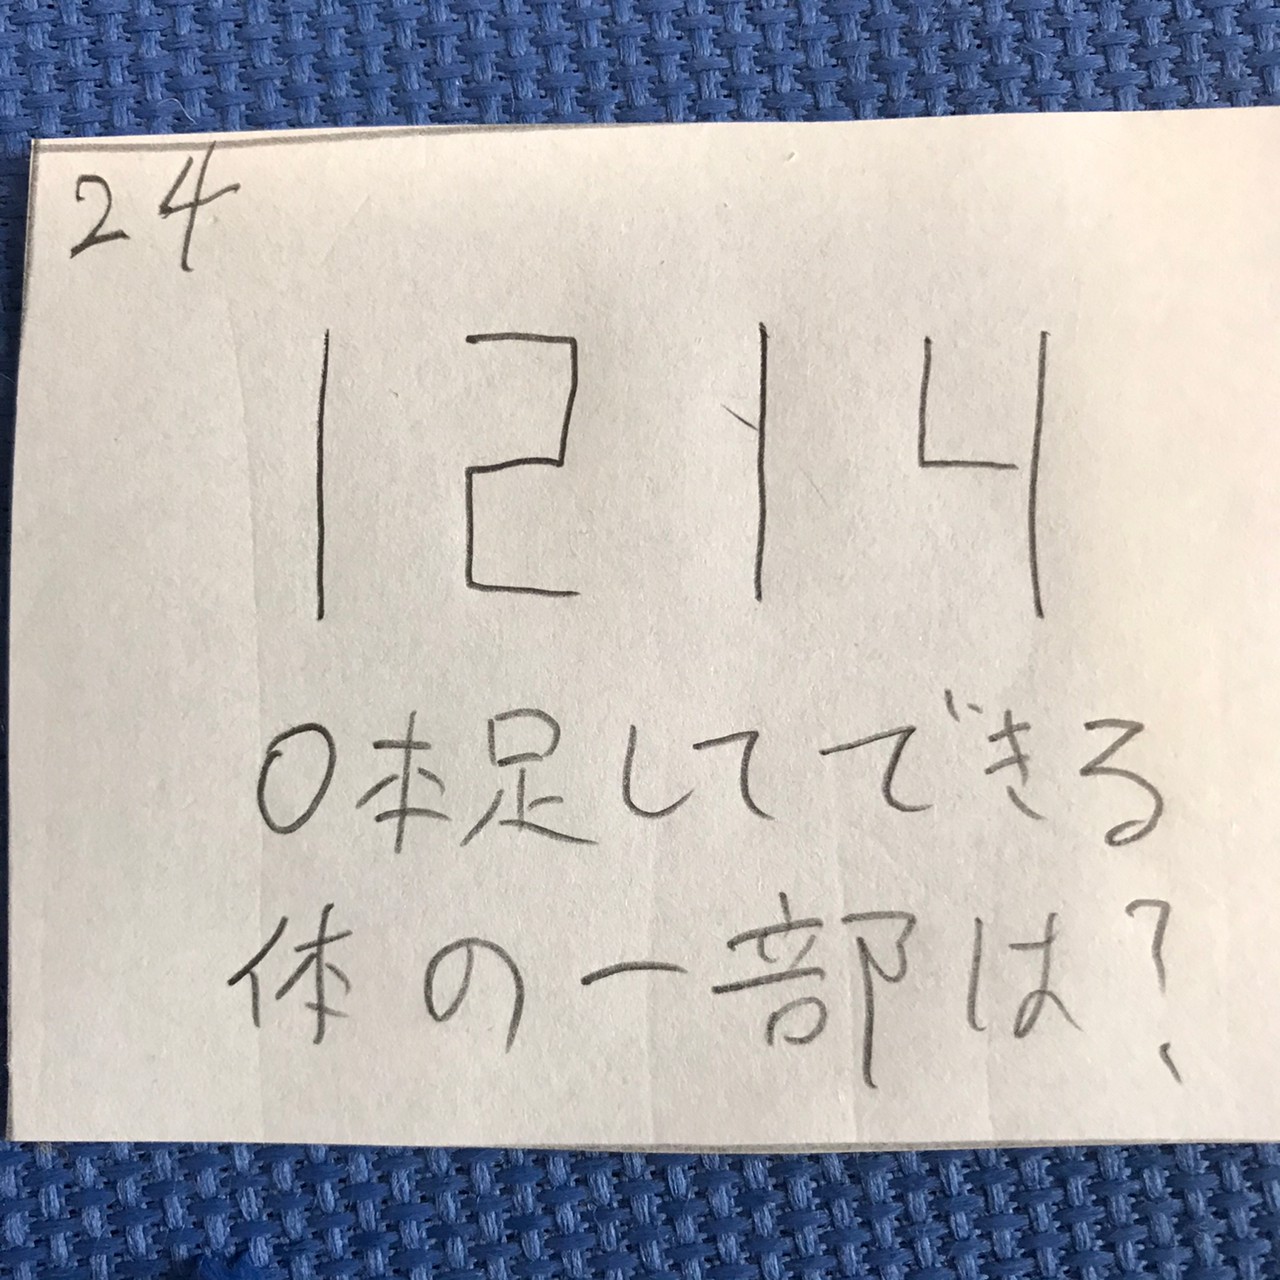 24
1214
0本足してできる
体の一部は?